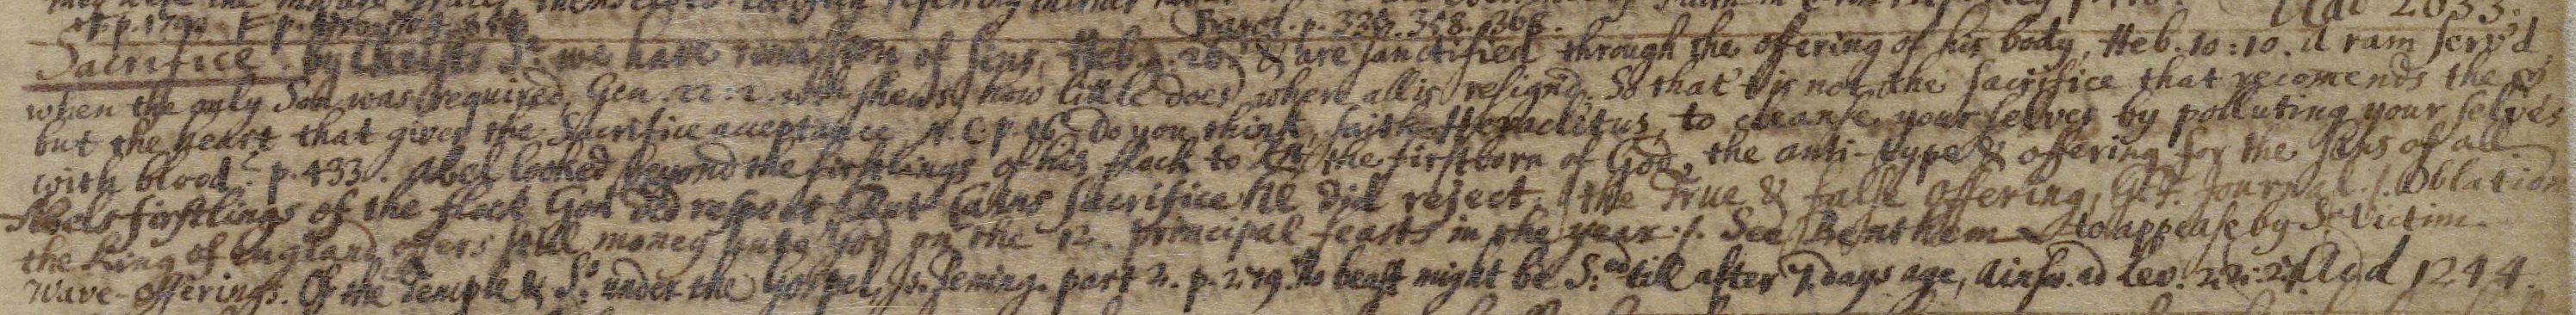 Add 2033.
Barol. p. 338. 358. 368.
Sacrifice. by Christs S.e we have remission of sins, Heb. 9. 26. & are sanctified through the offering of his body, Heb. 10:10. A ram serv'd
when the only Son was required, Gen. 22:2. wch shews, how little does, where all is resignd. So that 't is not the sacrifice that recomends the
but the heart that gives the Sacrifice acceptance, p. 16. do you think, saith Heraclitus, to cleanse your selves by polluting your selves
with blood? p. 433. Abel looked beyond the firstlings of his flock to the firstborn of God, the anti-type & offering for the sins of all
Abels firstlings of the flock God did respect But Cains sacrifice he did reject. the True & false offering, G.F. Journal. Oblation
the King of England offers still money God on the 12. principal feasts in the year. See Benthem to appease by S. Victim
Wave-offerings. Of the Temple & S.s under the Gospel, part 2. p. 279. No beast might be S.ced till after 7 days age, Ainsw. ad Lev. 22:27. Add 1244.